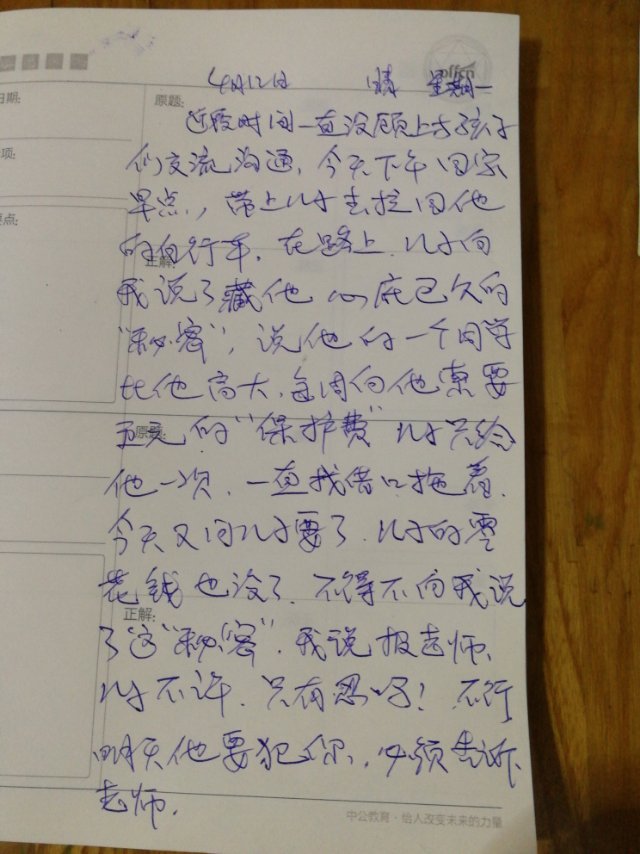 offcn
4月12日 晴 星期一
日期:
原题:
近段时间一直没顾上与孩子
们交流沟通，今天下午回家
项:
早点，带上儿子去拉回他
要点:
的自行车，在路上，儿子向
正解:
我说了藏他心底已久的
“秘密”，说他的一个同学
比他高大，每周向他索要
五元的“保护费”儿子只给
原题:
他一次，一直找借口拖着，
今天又问儿子要了，儿子的零
花钱也没了，不得不向我说
正解:
了这“秘密”，我说报老师，
儿子不许，只有忍吗！不行
明天他要犯你，必须告诉
老师.
中公教育·给人改变未来的力量